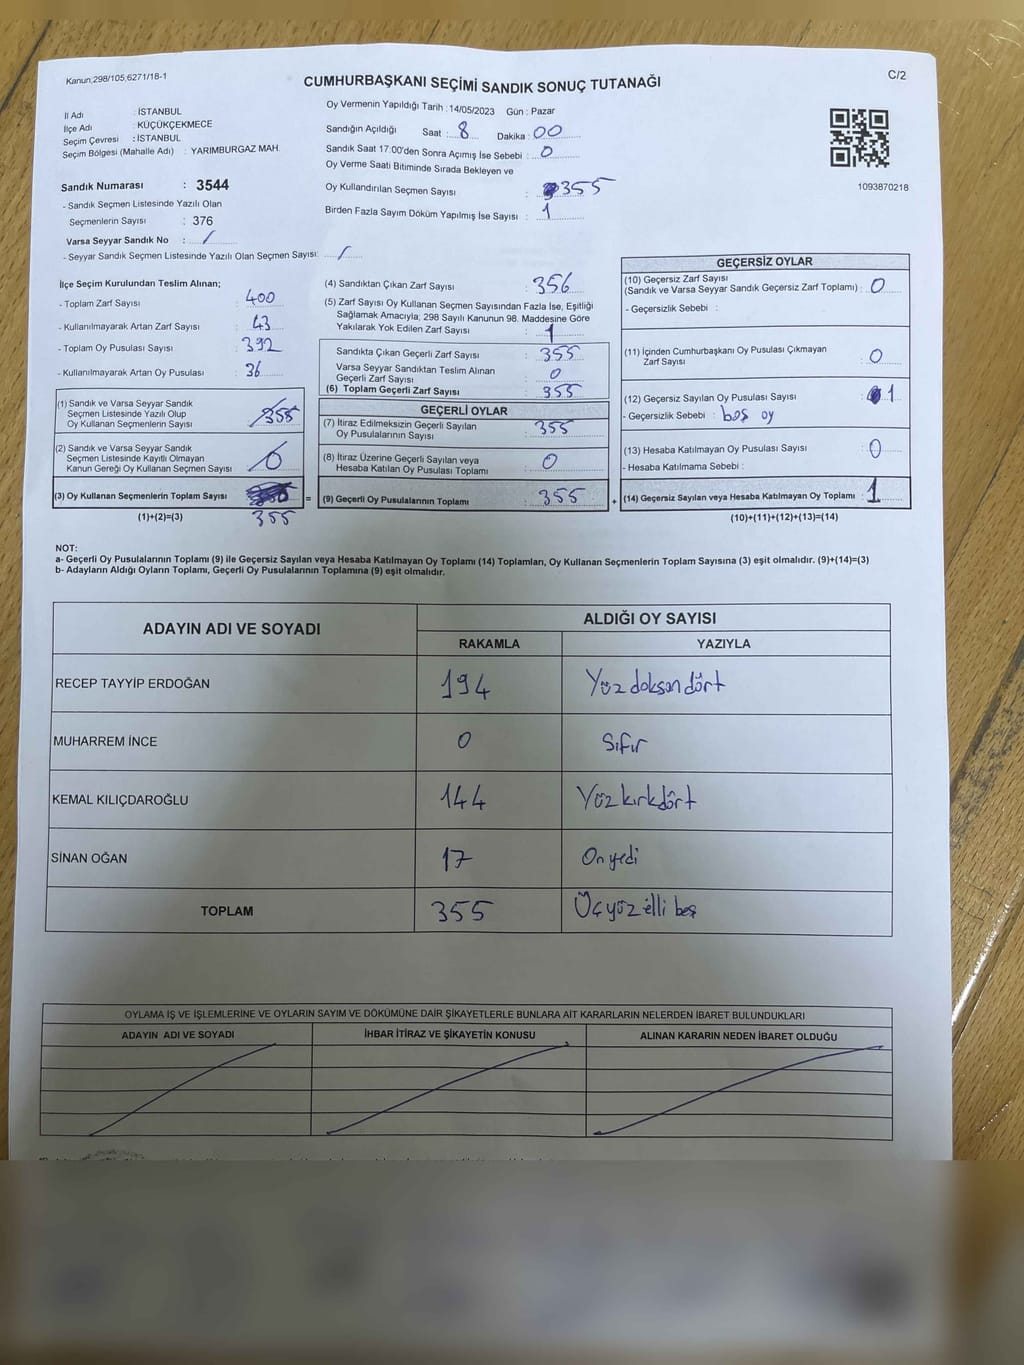 Kanun;298/105,6271/18-1
C/2
CUMHURBAŞKANI SEÇİMİ SANDIK SONUÇ TUTANAĞI
İl Adı : İSTANBUL
İlçe Adı : KÜÇÜKÇEKMECE
Seçim Çevresi : İSTANBUL
Seçim Bölgesi (Mahalle Adı) : YARIMBURGAZ MAH.
Sandık Numarası : 3544
- Sandık Seçmen Listesinde Yazılı Olan
Seçmenlerin Sayısı : 376
Varsa Seyyar Sandık No : /
- Seyyar Sandık Seçmen Listesinde Yazılı Olan Seçmen Sayısı: /
Oy Vermenin Yapıldığı Tarih : 14/05/2023 Gün : Pazar
Sandığın Açıldığı Saat : 8 Dakika : 00
Sandık Saat 17:00'den Sonra Açımış İse Sebebi : 0
Oy Verme Saati Bitiminde Sırada Bekleyen ve
Oy Kullandırılan Seçmen Sayısı : 355
Birden Fazla Sayım Döküm Yapılmış İse Sayısı : 1
1093870218
İlçe Seçim Kurulundan Teslim Alınan;
- Toplam Zarf Sayısı : 400
- Kullanılmayarak Artan Zarf Sayısı : 43
- Toplam Oy Pusulası Sayısı : 392
- Kullanılmayarak Artan Oy Pusulası : 36
(1) Sandık ve Varsa Seyyar Sandık
Seçmen Listesinde Yazılı Olup
Oy Kullanan Seçmenlerin Sayısı : 355
(2) Sandık ve Varsa Seyyar Sandık
Seçmen Listesinde Kayıtlı Olmayan
Kanun Gereği Oy Kullanan Seçmen Sayısı : 0
(3) Oy Kullanan Seçmenlerin Toplam Sayısı :
=
(1)+(2)=(3) 355
(4) Sandıktan Çıkan Zarf Sayısı : 356
(5) Zarf Sayısı Oy Kullanan Seçmen Sayısından Fazla İse, Eşitliği
Sağlamak Amacıyla; 298 Sayılı Kanunun 98. Maddesine Göre
Yakılarak Yok Edilen Zarf Sayısı : 1
Sandıkta Çıkan Geçerli Zarf Sayısı : 355
Varsa Seyyar Sandıktan Teslim Alınan
Geçerli Zarf Sayısı : 0
(6) Toplam Geçerli Zarf Sayısı : 355
GEÇERLİ OYLAR
(7) İtiraz Edilmeksizin Geçerli Sayılan
Oy Pusulalarının Sayısı : 355
(8) İtiraz Üzerine Geçerli Sayılan veya
Hesaba Katılan Oy Pusulası Toplamı : 0
(9) Geçerli Oy Pusulalarının Toplamı : 355
+
GEÇERSİZ OYLAR
(10) Geçersiz Zarf Sayısı
(Sandık ve Varsa Seyyar Sandık Geçersiz Zarf Toplamı) : 0
- Geçersizlik Sebebi :
(11) İçinden Cumhurbaşkanı Oy Pusulası Çıkmayan
Zarf Sayısı : 0
(12) Geçersiz Sayılan Oy Pusulası Sayısı : 1
- Geçersizlik Sebebi : boş oy
(13) Hesaba Katılmayan Oy Pusulası Sayısı : 0
- Hesaba Katılmama Sebebi :
(14) Geçersiz Sayılan veya Hesaba Katılmayan Oy Toplamı : 1
(10)+(11)+(12)+(13)=(14)
NOT:
a- Geçerli Oy Pusulalarının Toplamı (9) ile Geçersiz Sayılan veya Hesaba Katılmayan Oy Toplamı (14) Toplamları, Oy Kullanan Seçmenlerin Toplam Sayısına (3) eşit olmalıdır. (9)+(14)=(3)
b- Adayların Aldığı Oyların Toplamı, Geçerli Oy Pusulalarının Toplamına (9) eşit olmalıdır.
ADAYIN ADI VE SOYADI
ALDIĞI OY SAYISI
RAKAMLA YAZIYLA
RECEP TAYYİP ERDOĞAN 194 Yüz doksan dört
MUHARREM İNCE 0 Sıfır
KEMAL KILIÇDAROĞLU 144 Yüz kırkdört
SİNAN OĞAN 17 On yedi
TOPLAM 355 Üçyüz elli beş
OYLAMA İŞ VE İŞLEMLERİNE VE OYLARIN SAYIM VE DÖKÜMÜNE DAİR ŞİKAYETLERLE BUNLARA AİT KARARLARIN NELERDEN İBARET BULUNDUKLARI
ADAYIN ADI VE SOYADI İHBAR İTİRAZ VE ŞİKAYETİN KONUSU ALINAN KARARIN NEDEN İBARET OLDUĞU